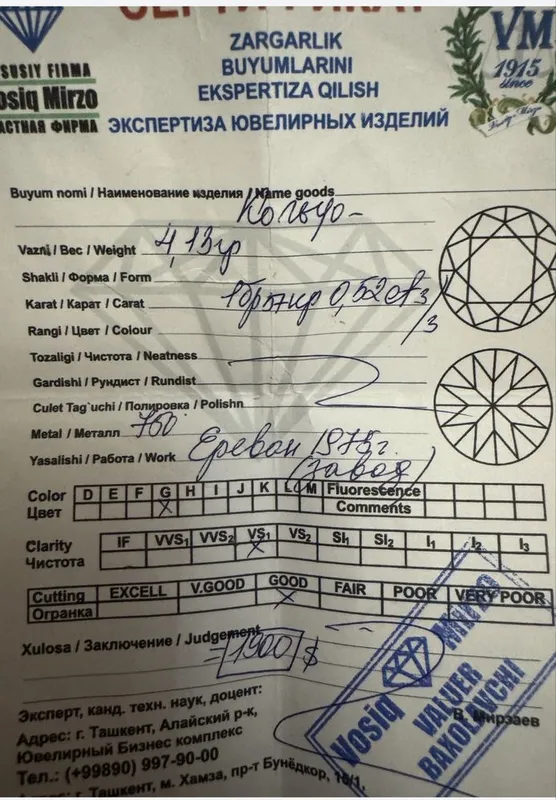 СЕРТИФИКАТ
SUSIY FIRMA
osiq Mirzo
АСТНАЯ ФИРМА
ZARGARLIK
BUYUMLARINI
EKSPERTIZA QILISH
ЭКСПЕРТИЗА ЮВЕЛИРНЫХ ИЗДЕЛИЙ
VM
1915
since
Buyum nomi / Наименование изделия / Name goods
Кольцо -
Vazni / Вес / Weight 4,13гр
Shakli / Форма / Form
Karat / Карат / Carat 1бр-нт 0,52ct 3/3
Rangi / Цвет / Colour
Tozaligi / Чистота / Neatness
Gardishi / Рундист / Rundist
Culet Tag`uchi / Полировка / Polishn
Metal / Металл 750
Yasalishi / Работа / Work Ереван 1975г.
(завод)
Color D E F G H I J K L M Fluorescence
Цвет X Comments
Clarity IF VVS1 VVS2 VS1 VS2 SI1 SI2 I1 I2 I3
Чистота X
Cutting EXCELL V.GOOD GOOD FAIR POOR VERY POOR
Огранка X
Xulosa / Заключение / Judgement
= 1900 $
Эксперт, канд. техн. наук, доцент:
В. Мирзаев
Адрес: г. Ташкент, Алайский р-к,
Ювелирный Бизнес комплекс
Тел.: (+99890) 997-90-00
Адрес: г. Ташкент, м. Хамза, пр-т Бунёдкор, 15/1,
Vosiq MIRZO
VALUER
BAXOLOVCHI